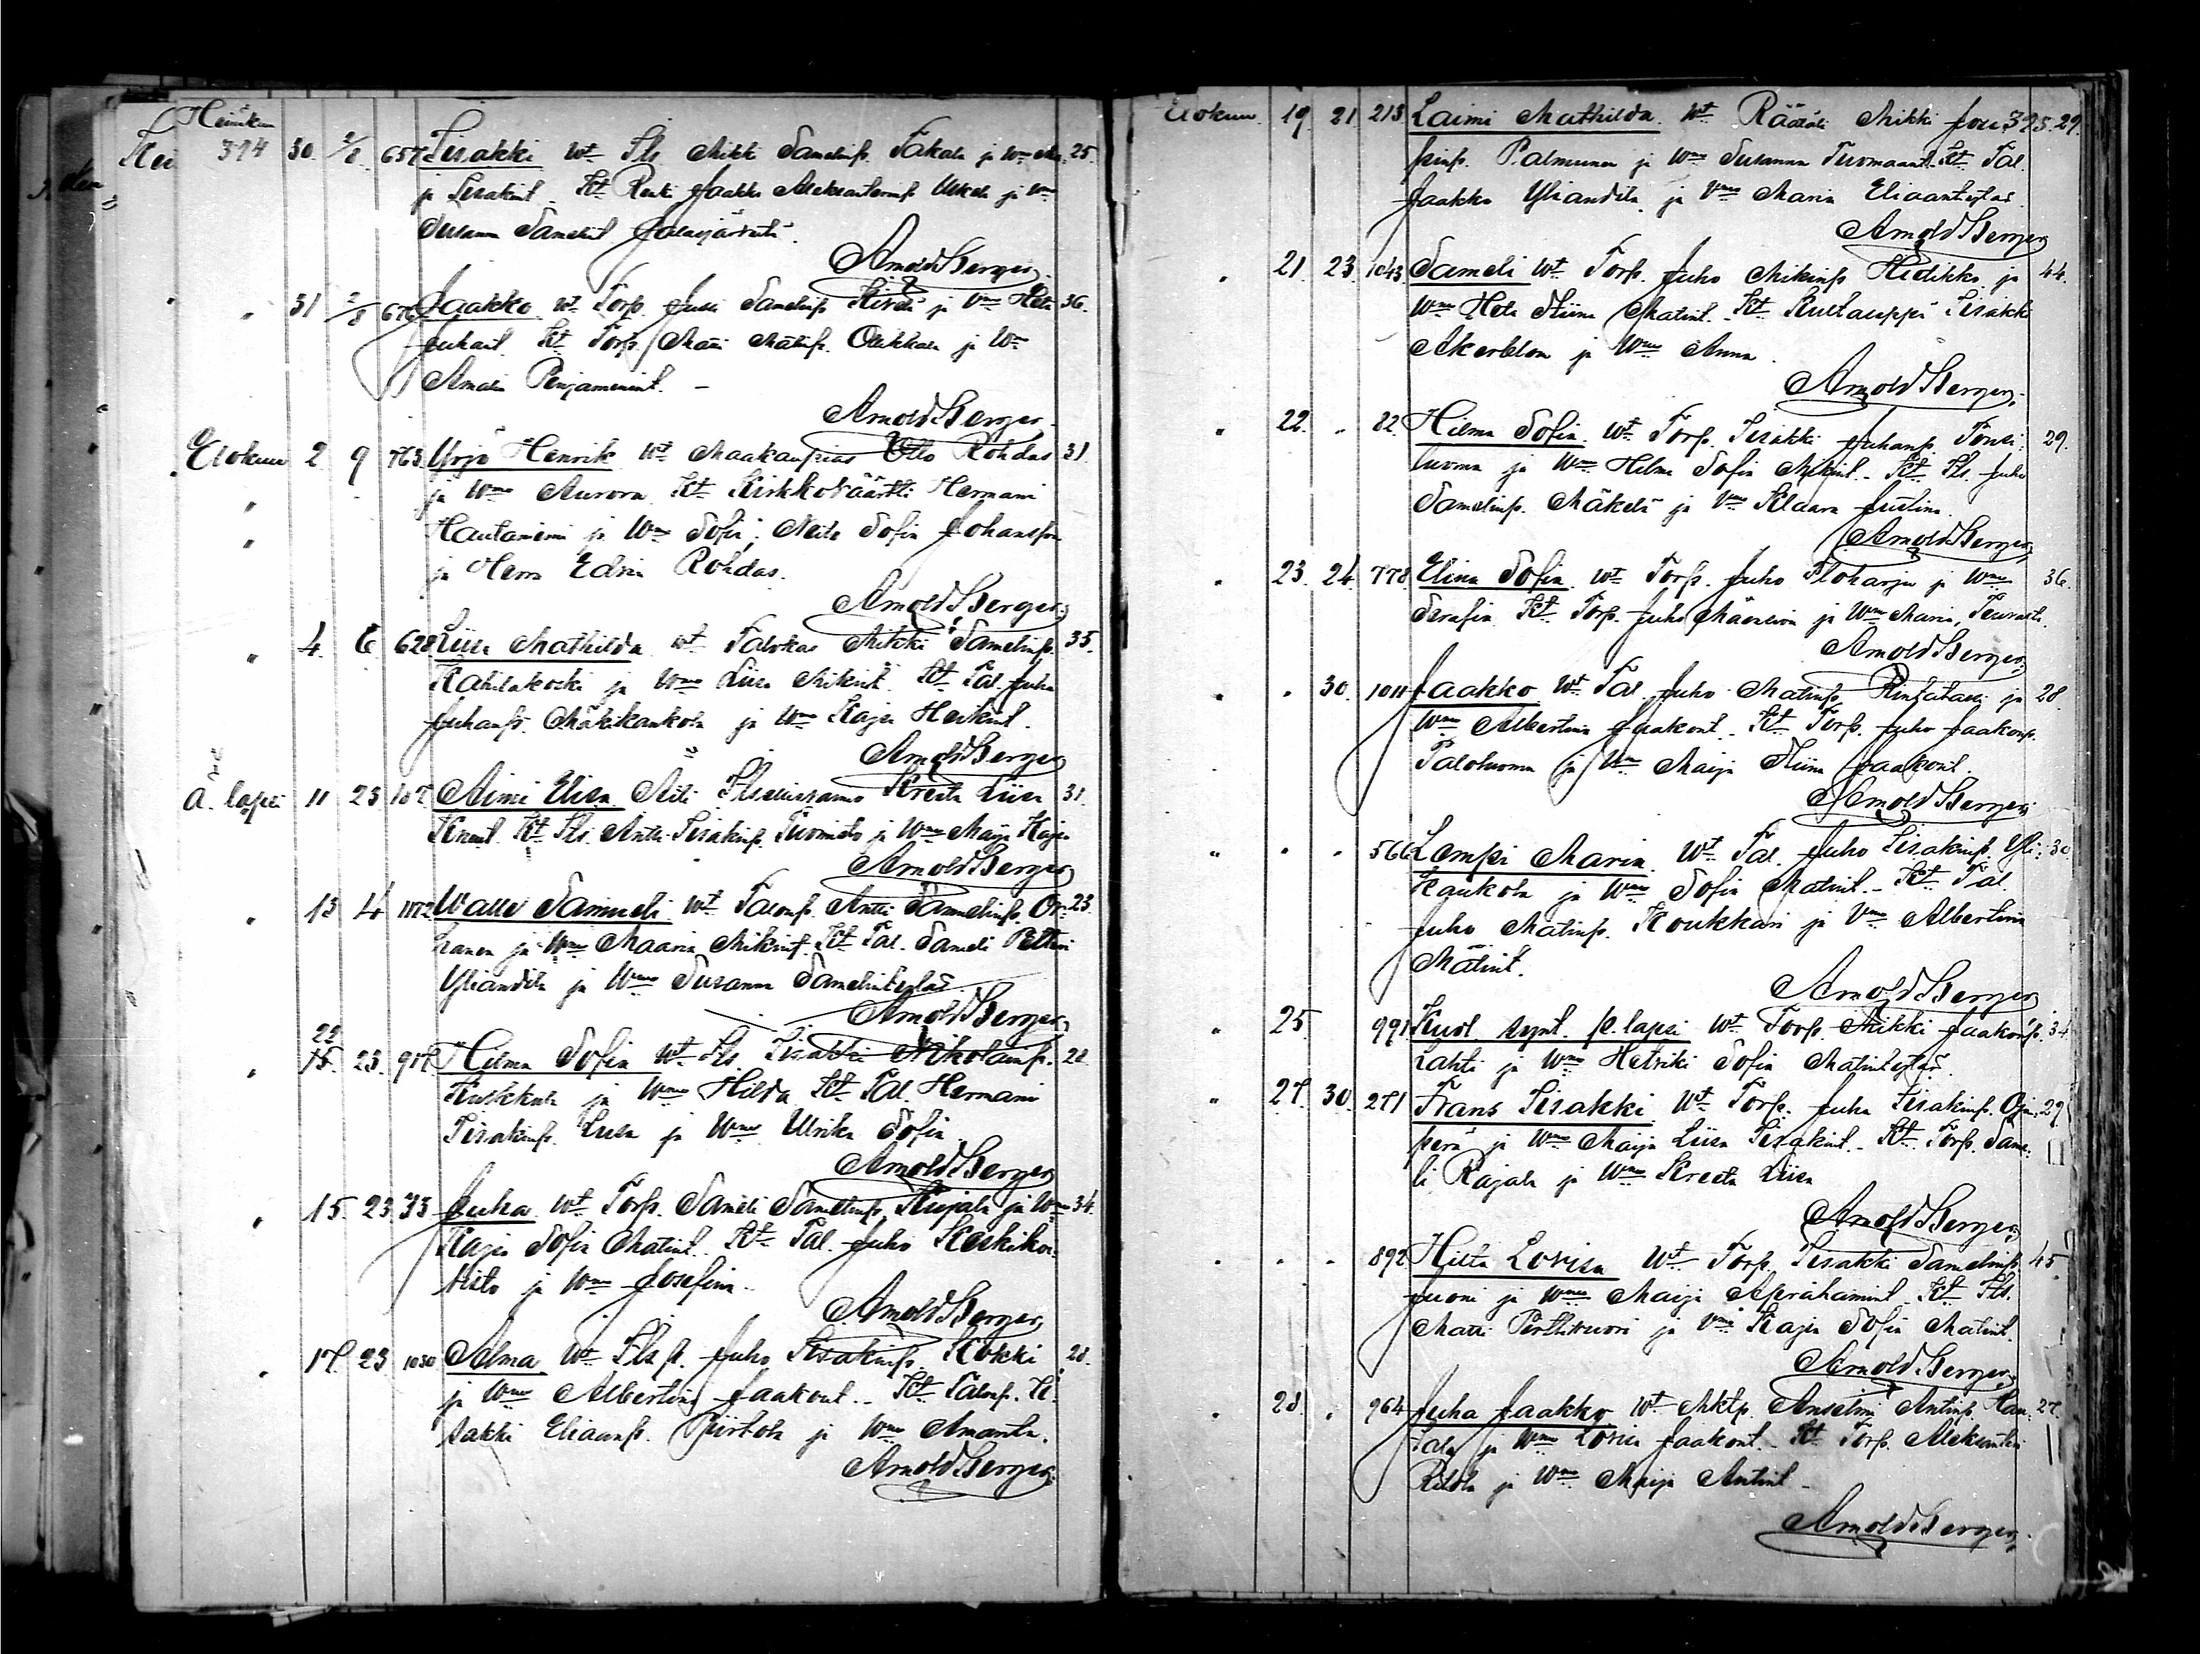 Heinäkun
394 30. 2/8 657 Iisakki wt Its. Mikki Samelinp. Takala ja Wmo 25.
ja Iisakint. Kt Renki Jaakko Aleksanterinp. Uskela ja Wmo
Susanna Samelint Jalasjärveltä.
Arnold Berger.
" 31 2/8 676 Jaakko wt Torp. Jussi Samelinp. Hirsi ja Vmo Heta 36.
Juhant. Kt Torp. Matti Matinp. Ollikkala ja Wmo
Amalia Penjamenint. –
Arnold Berger.
Elokuu 2 9 763 Yrjö Henrik wt Maakauppias Otto Rohdas 31
ja Wmo Aurora. Kt Kirkkoväärtti Hermanni
Hautaniemi ja Wmo Sofia; Neito Sofia Johansson
ja Herra Edvin Rohdas.
Arnold Berger.
" 4. 6 628 Liisa Mathilda wt Talokas Mikki Samelinp. 35.
Kahilakoski ja Wmo Liisa Mikint. Kt Tal. Juha
Juhanp. Mäkikaukola ja Wmo Kajsa Heikint.
Arnold Berger
Ä. lapsi 11 23 Aimi Elisa Äiti Itsellisnainen Kreeta Liisa 31.
Kt Its. Antti Iisakinp. Tuomisto ja Wmo Maija Kajsa
Arnold Berger
" 13 14 1172 Walle Samueli wt Talonp. Antti Samelinp. Or- 23.
hanen ja Wmo Maaria Mikint. Kt Tal. Sameli Petteri
Yliandila ja Wmo Susanna Samelintytär.
Arnold Berger
22
" 15. 23. 917 Helma Sofia wt Its. Iisakki Nikolainp. 22
ja Wmo Hilda Kt Tal. Hermanni
Iisakinp. Luoa ja Wmo Ulrika Sofia
Arnold Berger
" 15. 23 33 Juha wt Torp. Sameli Samelinp. Kujala ja Wmo 34.
Kajsa Sofia Matint. Kt Tal. Juho Keskiko-
risto ja Wmo Josefina.
Arnold Berger
" 17. 23 1030 Alma wt Its p. Juho Iisakinp. Kokki 28.
ja Wmo Albertina Jaakont. Kt Talonp. Ii-
sakki Eliaanp. Piirtola ja Wmo Amanta.
Arnold Berger
Elokuu 19. 21 213 Laimi Mathilda wt Räätäli Mikki Joose- 395. 29.
pinp. Palmunen ja Wmo Susanna Tuomaant. Kt Tal.
Jaakko Yliandila ja Vmo Maria Eliaantytär
Arnold Berger
" 21 23 1043 Sameli wt Torp. Juho Mikinp. Hietikko ja 44.
Wmo Heta Stiina Matint. Kt Kultaseppä Iisakki
Akerblom ja Wmo Anna.
Arnold Berger
" 22. " 82. Hilma Sofia wt Torp. Iisakki Juhanp. 29.
luoma ja Wmo Hilma Sofia Mikint. Kt Its. Juho
Samelinp. Mäkelä ja Vmo Klaara Justina.
Arnold Berger
" 23. 24 778 Elina Sofia wt Torp. Juho Iloharju ja Wmo 36.
Serafia Kt Torp. Juho Mäensivu ja Wmo Maria, Peurasta.
Arnold Berger
" " 30. 1011 Jaakko wt Tal. Juho Matinp. Rintatalo ja 28.
Wmo Albertina Jaakont. Kt Torp. Juho Jaakonp.
Paloluoma ja Vmo Maija Stiina Jaakont.
Arnold Berger
" " " 566 Lempi Maria wt Tal. Juho Iisakinp. Yli- 30
kaukola ja Wmo Sofia Matint. – Kt Tal.
Juho Matinp. Koukkari ja Vmo Albertina
Matint.
Arnold Berger
" 25 991 Kuol. synt. p. lapsi wt Torp. Mikki Jaakonp. 34
Lahti ja Wmo Hetriki Sofia Matintytär.
" 27. 30. 271 Frans Iisakki wt Torp. Juha Iisakinp. Oja- 29.
perä ja Wmo Maija Liisa Iisakint. – Kt Torp. Same-
li Rajala ja Wmo Kreeta Liisa
Arnold Berger
" " " 892 Hilta Lovisa wt Torp. Iisakki Samelinp. 45
Juoni ja Wmo Maija Aprahamint. Kt Its.
Matti Perttikuori ja Vmo Kajsa Sofia Matint.
Arnold Berger
" 28. " 964 Juha Jaakko wt Mktp. Anselmi Antinp. Han- 27.
kala ja Wmo Lovisa Jaakont. – Kt Torp. Aleksanteri
Ritola ja Wmo Maija Antint –
Arnold Berger.